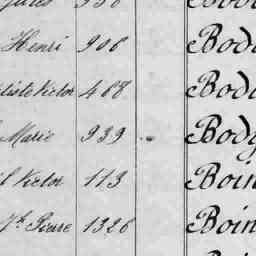 Henri 908 Bod
Victor 468 Bod
Marie 939 Body
Victor 113 Boin
Pierre 1326 Boin